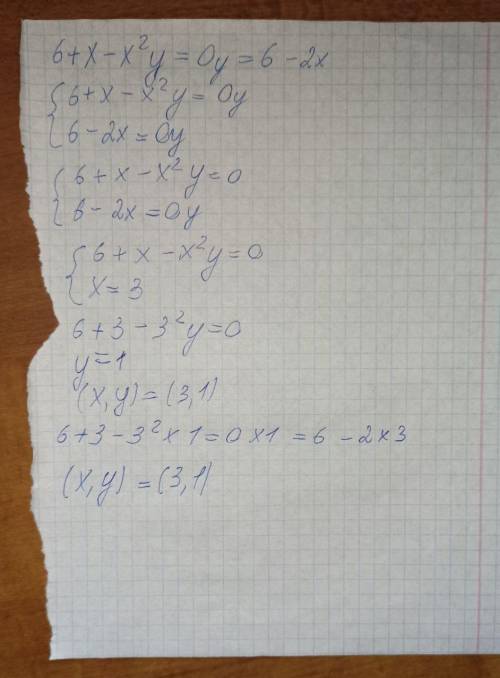 6+x-x²y=0y=6-2x
{6+x-x²y=0y
6-2x=0y
{6+x-x²y=0
6-2x=0y
{6+x-x²y=0
x=3
6+3-3²y=0
y=1
(x,y)=(3,1)
6+3-3²×1=0×1=6-2×3
(x,y)=(3,1)